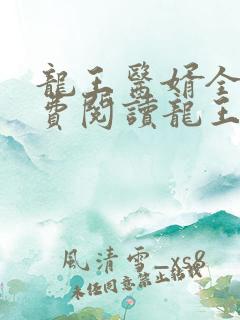 龍王醫婿全
費閱讀龍王
風清雪_xs8
未經同意禁止轉載